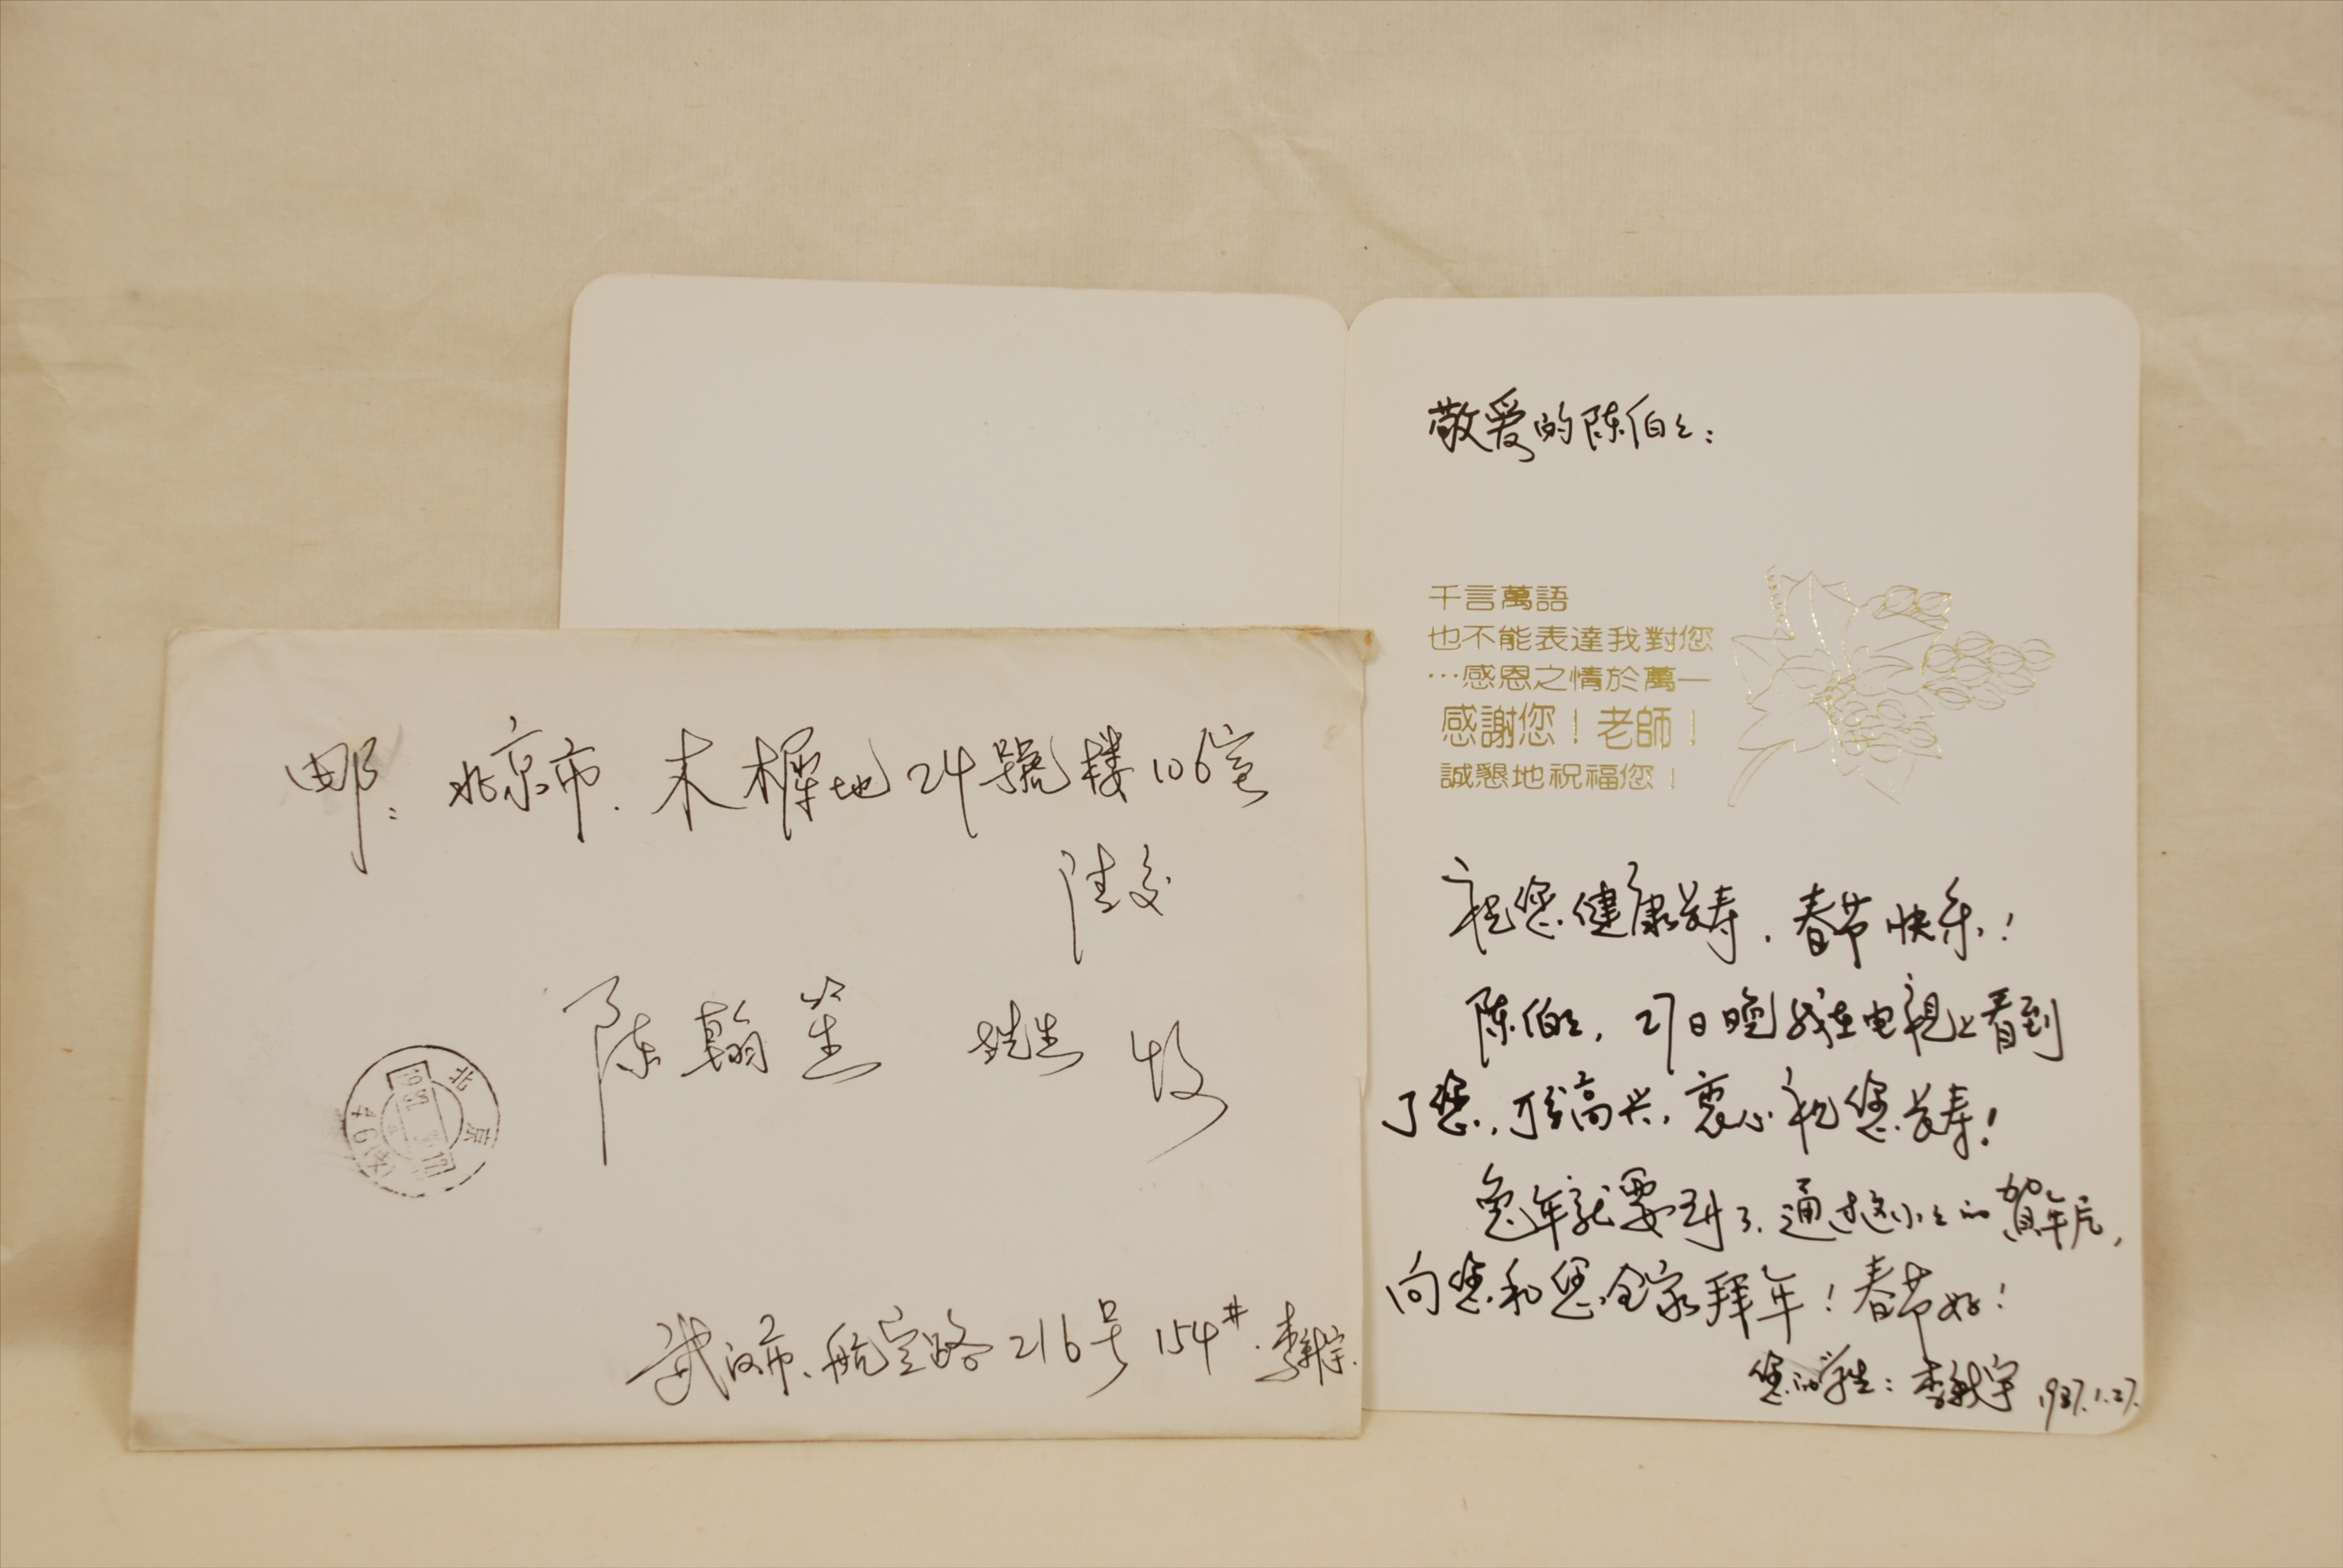 邮：北京市．木樨地24號楼106室
陈翰笙 先生 收
北京
武汉市、航空路216号154#．李
敬爱的陈伯々：
千言萬語
也不能表達我對您
…感恩之情於萬一
感謝您！老師！
誠懇地祝福您！
祝您健康长寿，春节快乐！
陈伯々，27日晚我在电视上看到
了您，可高兴，衷心祝您长寿！
兔年就要到了，通过这小々的賀年片，
向您和您全家拜年！春节好！
您的学生：李 1987.1.27.